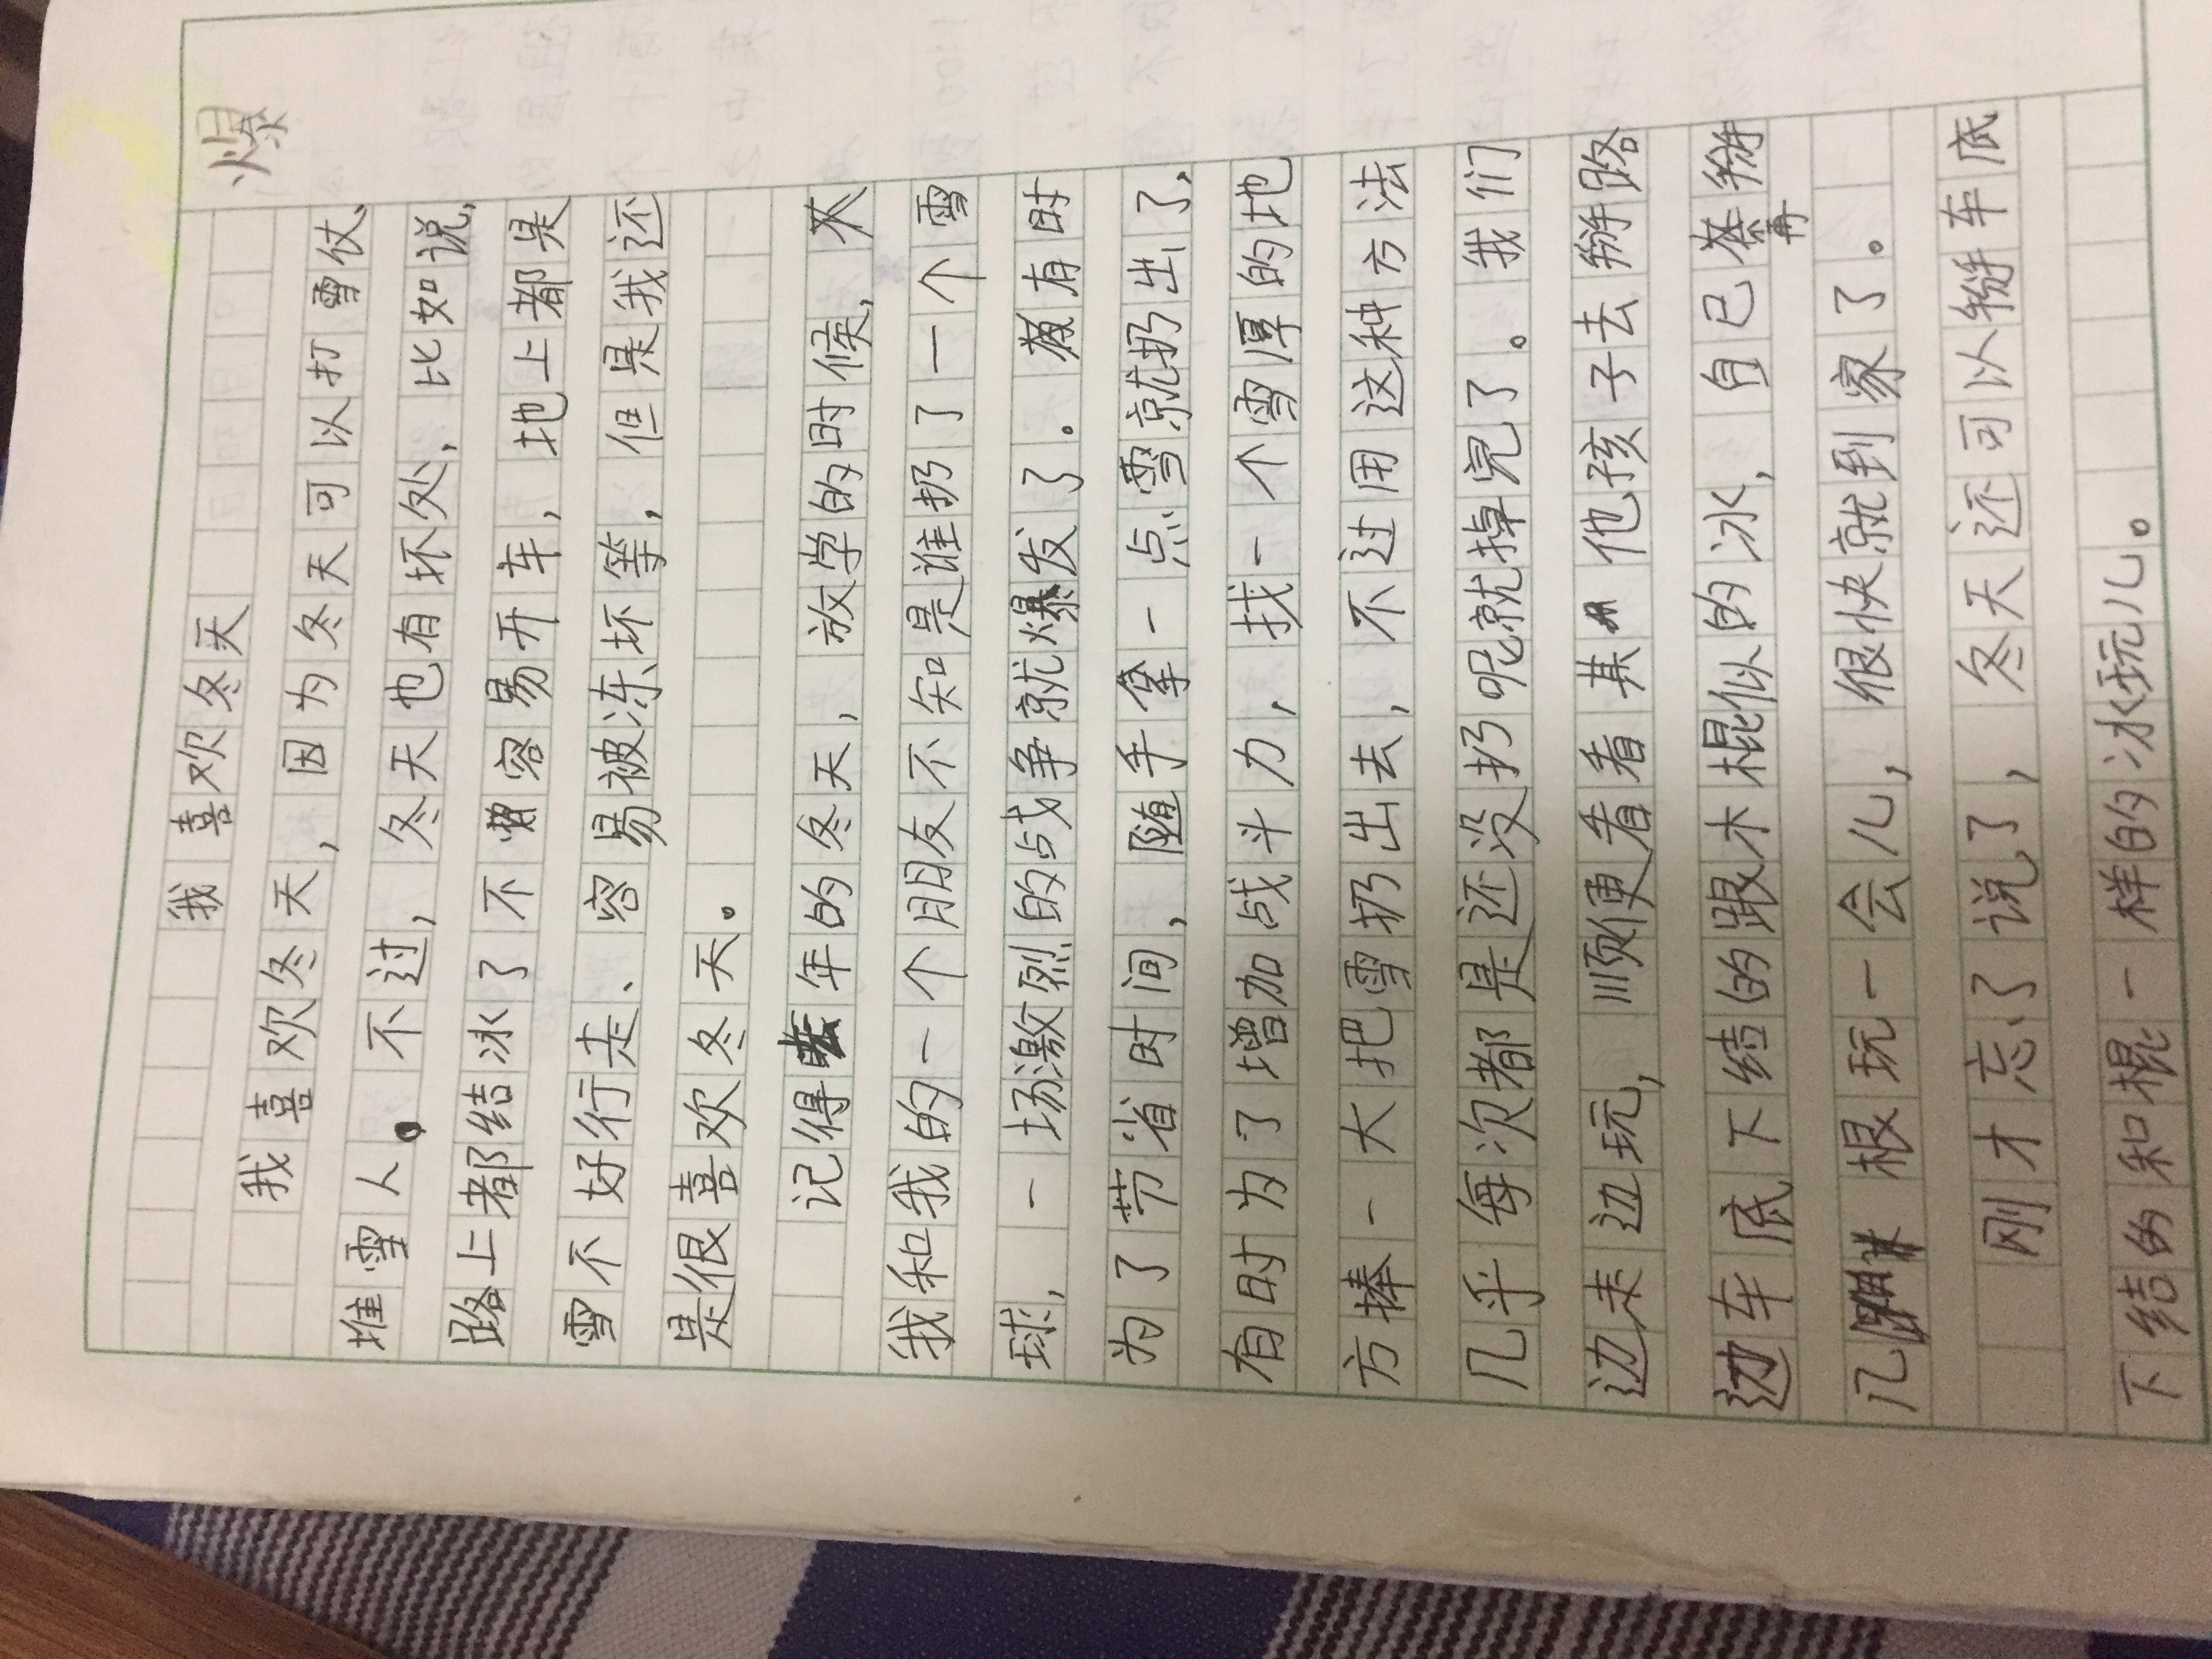 我喜欢冬天
爆
我喜欢冬天，因为冬天可以打雪仗、
堆雪人。不过，冬天也有坏处，比如说，
路上都结冰了不容易开车，地上都是
雪不好行走、容易被冻坏等，但是我还
是很喜欢冬天。
记得去年的冬天，放学的时候，
我和我的一个朋友不知是谁扔了一个雪
球，一场激烈的战争就爆发了。有时
为了节省时间，随手拿一点雪就扔出了，
有时为了增加战斗力，找一个雪厚的地
方捧一大把雪扔出去，不过用这种方法
几乎每次都是还没扔呢就掉完了。我们
边走边玩，顺便看看其他孩子去掰路
边车底下结的跟木棍似的冰，自己再掰
几根玩一会儿，很快就到家了。
刚才忘了说了，冬天还可以掰车底
下结的和棍一样的冰玩儿。